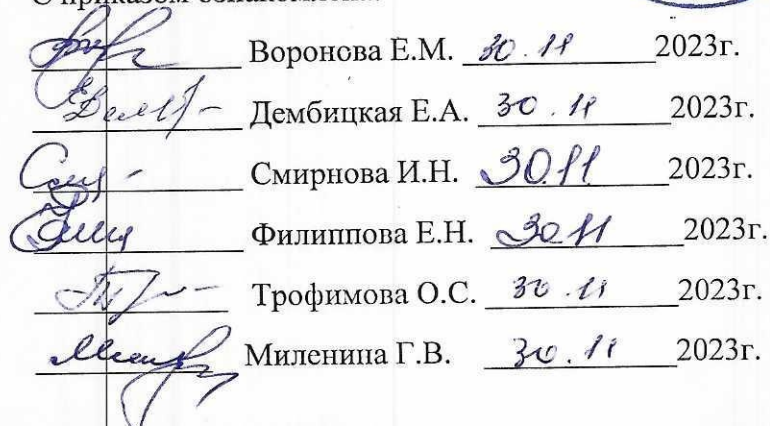 С приказом ознакомлены
Воронова Е.М. 30.11 2023г.
Дембицкая Е.А. 30.11 2023г.
Смирнова И.Н. 30.11 2023г.
Филиппова Е.Н. 30.11 2023г.
Трофимова О.С. 30.11 2023г.
Миленина Г.В. 30.11 2023г.